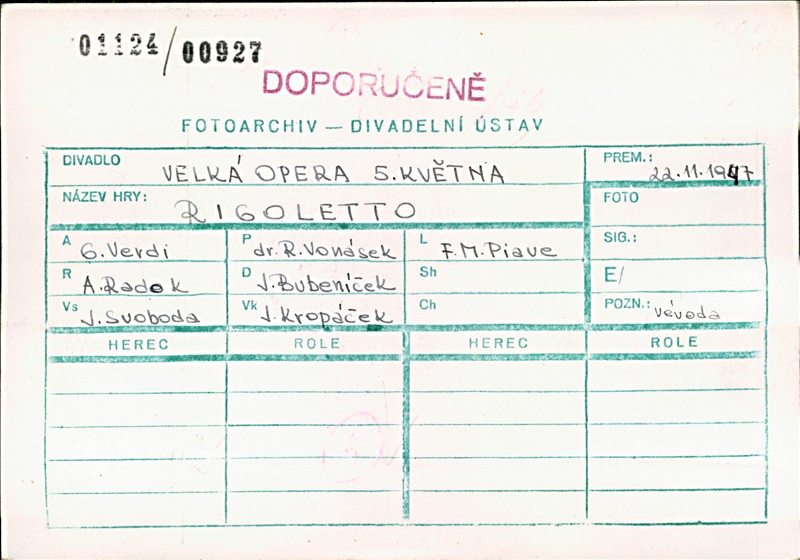 01124/00927
DOPORUČENĚ
FOTOARCHIV — DIVADELNÍ ÚSTAV
DIVADLO VELKÁ OPERA 5. KVĚTNA PREM.: 22.11.1947
NÁZEV HRY: RIGOLETTO FOTO
A G. Verdi P dr. R. Vonásek L F. M. Piave SIG.:
R A. Radok D J. Bubeníček Sh E/
Vs J. Svoboda Vk J. Kropáček Ch POZN.: vévoda
HEREC ROLE HEREC ROLE